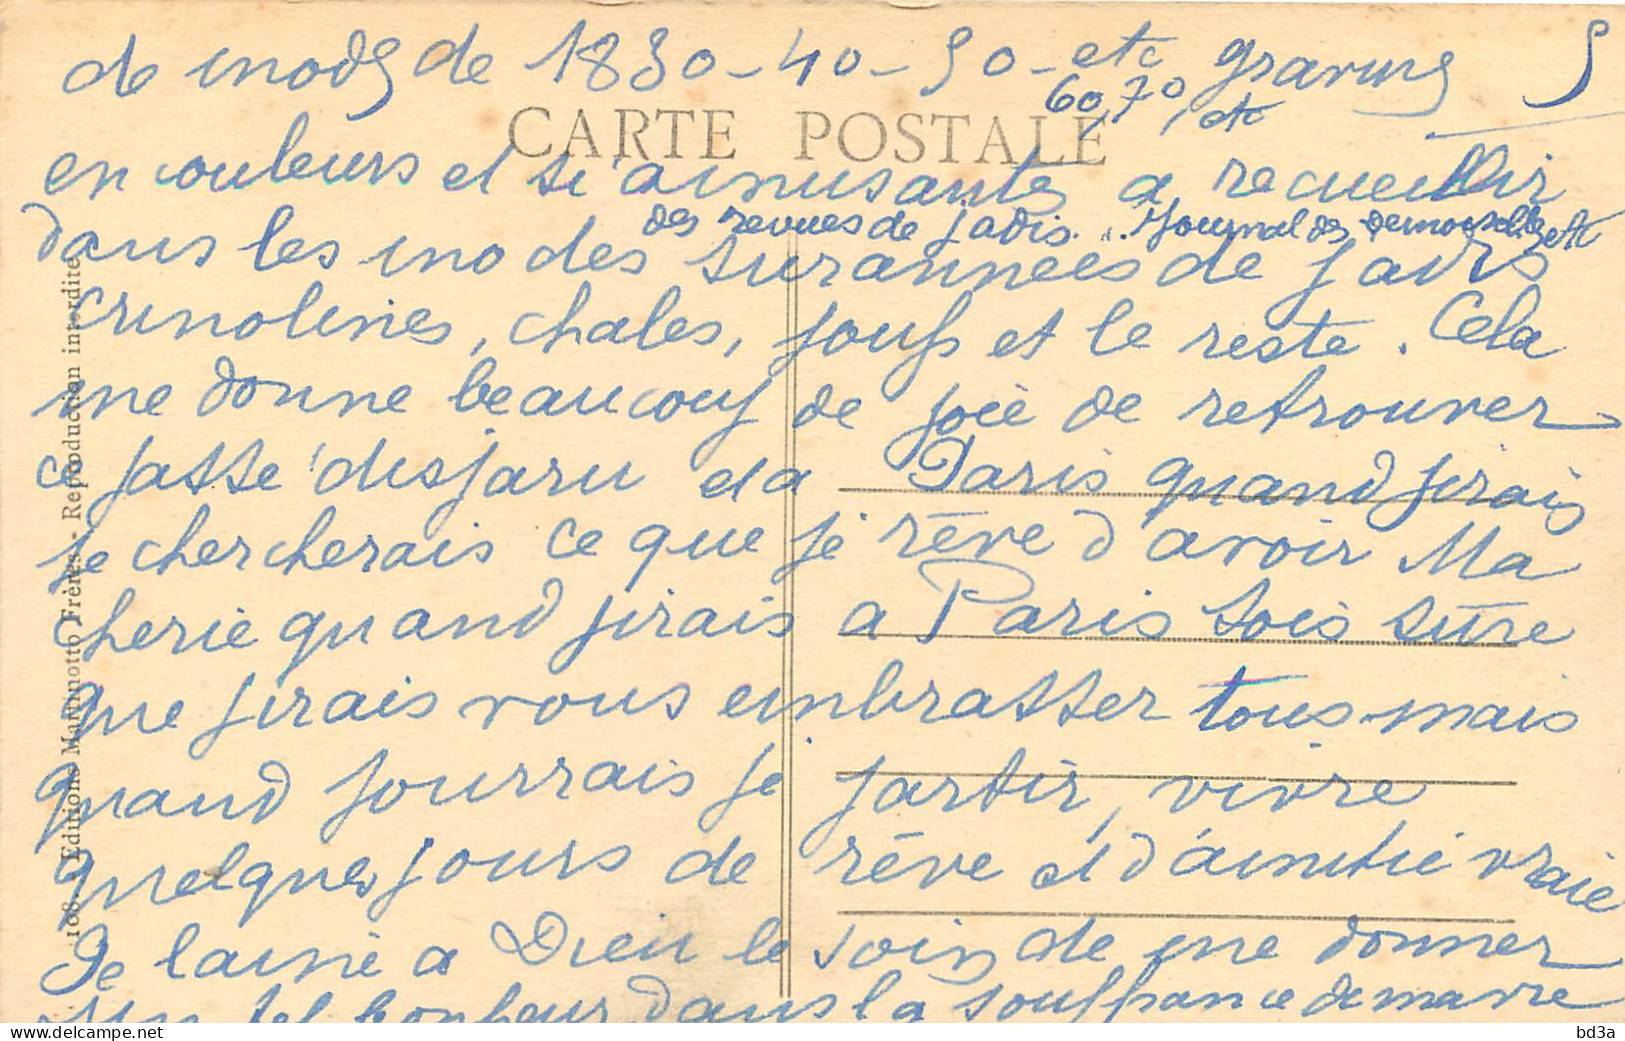 de modes de 1830-40-50- etc gravures 5
60, 70, etc
CARTE POSTALE
en couleurs et si amusantes a recueillir
des revues de jadis. Journal des demoiselles etc
dans les modes surannées de jadis
crinolines, chales, poufs et le reste. Cela
me donne beaucoup de joie de retrouver
ce passé disparu et a Paris quand jirais
je chercherais ce que je rêve d'avoir Ma
cherie quand jirais a Paris sois sûre
que jirais vous embrasser tous mais
quand pourrais je partir, vivre
quelques jours de rêve et d'amitié vraie
Je laisse a Dieu le soin de me donner
un tel bonheur dans la souffrance de ma vie
108. - Editions Mannotto Frères - Reproduction interdite
bd3a